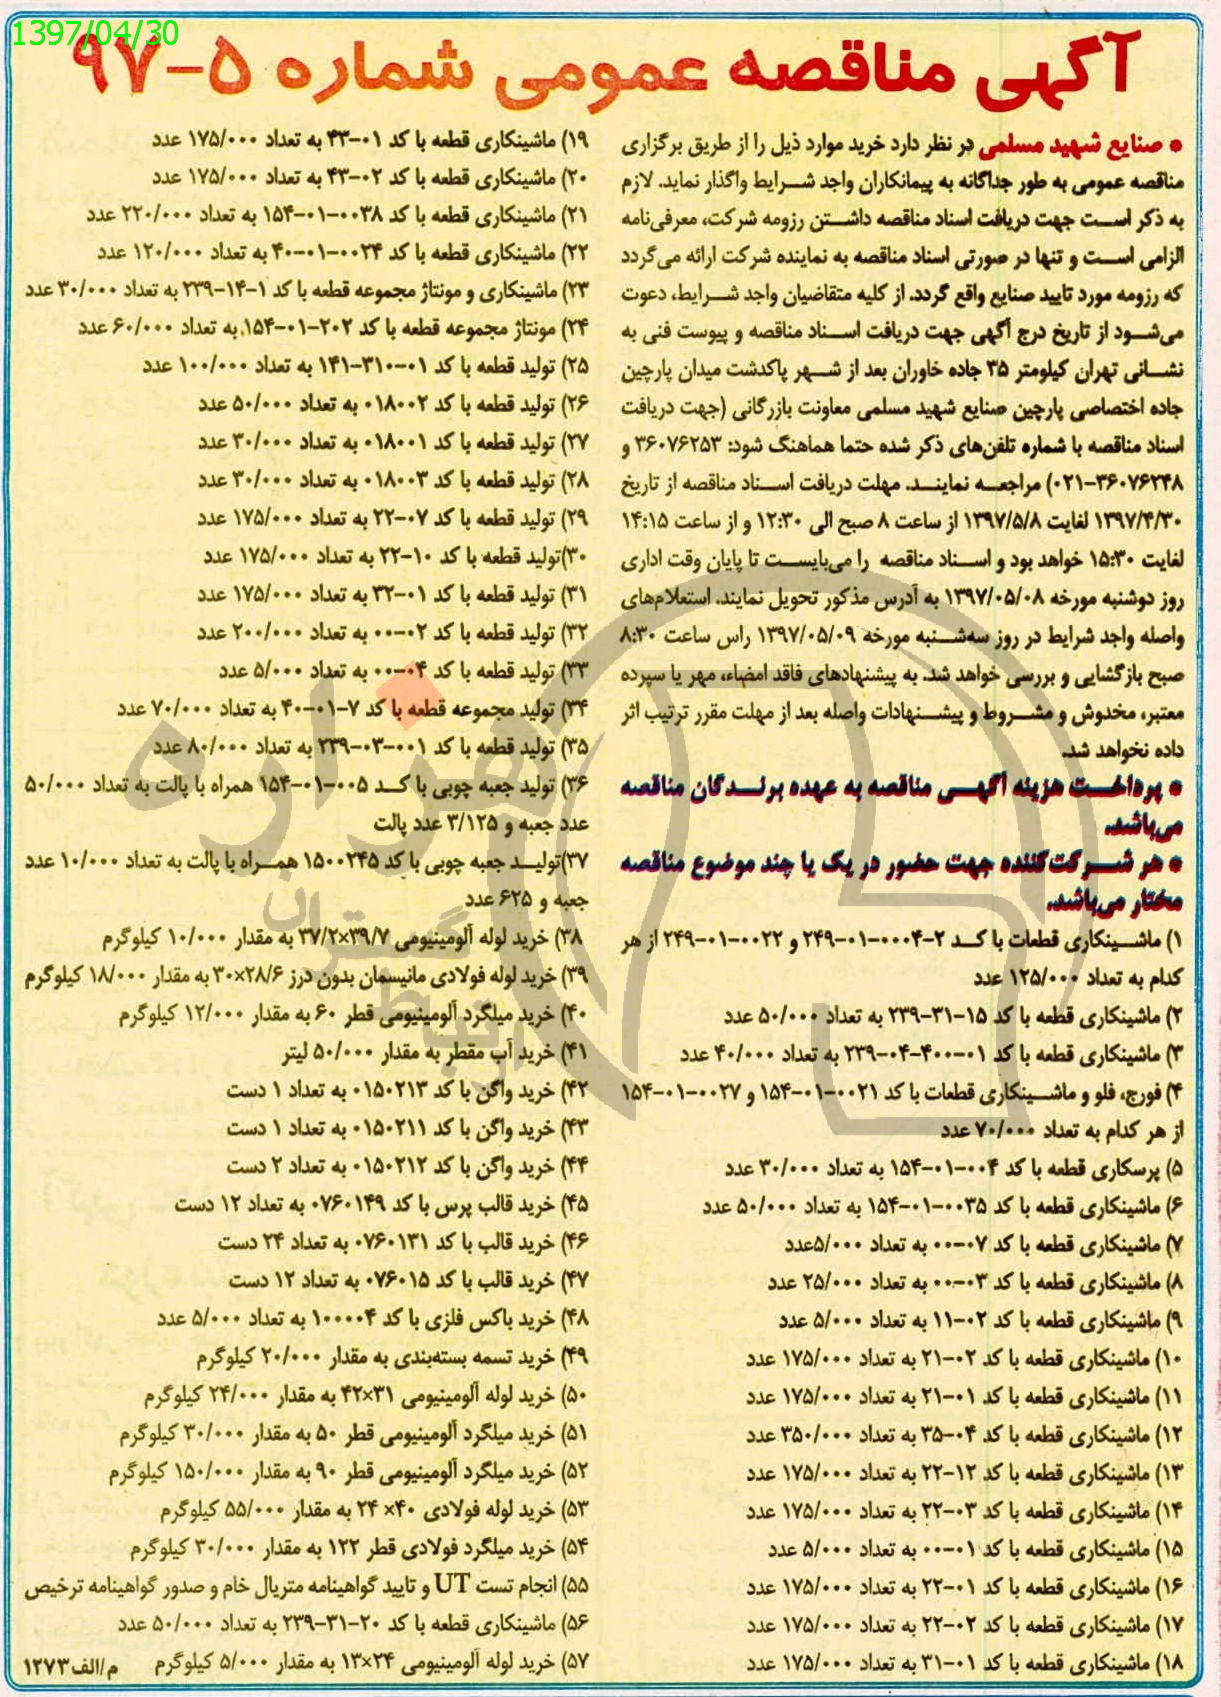 1397/04/30
آگهی مناقصه عمومی شماره ۵-۹۷
* صنایع شهید مسلمی در نظر دارد خرید موارد ذیل را از طریق برگزاری
مناقصه عمومی به طور جداگانه به پیمانکاران واجد شرایط واگذار نماید. لازم
به ذکر است جهت دریافت اسناد مناقصه داشتن رزومه شرکت، معرفی‌نامه
الزامی است و تنها در صورتی اسناد مناقصه به نماینده شرکت ارائه می‌گردد
که رزومه مورد تایید صنایع واقع گردد. از کلیه متقاضیان واجد شرایط، دعوت
می‌شود از تاریخ درج آگهی جهت دریافت اسناد مناقصه و پیوست فنی به
نشانی تهران کیلومتر ۳۵ جاده خاوران بعد از شهر پاکدشت میدان پارچین
جاده اختصاصی پارچین صنایع شهید مسلمی معاونت بازرگانی (جهت دریافت
اسناد مناقصه با شماره تلفن‌های ذکر شده حتما هماهنگ شود: ۳۶۰۷۶۲۵۳ و
۳۶۰۷۶۲۴۸-۰۲۱) مراجعه نمایند. مهلت دریافت اسناد مناقصه از تاریخ
۱۳۹۷/۴/۳۰ لغایت ۱۳۹۷/۵/۸ از ساعت ۸ صبح الی ۱۲:۳۰ و از ساعت ۱۴:۱۵
لغایت ۱۵:۳۰ خواهد بود و اسناد مناقصه را می‌بایست تا پایان وقت اداری
روز دوشنبه مورخه ۱۳۹۷/۰۵/۰۸ به آدرس مذکور تحویل نمایند. استعلام‌های
واصله واجد شرایط در روز سه‌شنبه مورخه ۱۳۹۷/۰۵/۰۹ راس ساعت ۸:۳۰
صبح بازگشایی و بررسی خواهد شد. به پیشنهادهای فاقد امضاء، مهر یا سپرده
معتبر، مخدوش و مشروط و پیشنهادات واصله بعد از مهلت مقرر ترتیب اثر
داده نخواهد شد.
* پرداخت هزینه آگهی مناقصه به عهده برندگان مناقصه
می‌باشد.
* هر شرکت‌کننده جهت حضور در یک یا چند موضوع مناقصه
مختار می‌باشد.
۱) ماشینکاری قطعات با کد ۲-۰۰۰۴-۰۱-۲۴۹ و ۰۰۲۲-۰۱-۲۴۹ از هر
کدام به تعداد ۱۲۵/۰۰۰ عدد
۲) ماشینکاری قطعه با کد ۱۵-۳۱-۲۳۹ به تعداد ۵۰/۰۰۰ عدد
۳) ماشینکاری قطعه با کد ۰۱-۴۰۰-۰۴-۲۳۹ به تعداد ۴۰/۰۰۰ عدد
۴) فورج، فلو و ماشینکاری قطعات با کد ۰۰۲۱-۰۱-۱۵۴ و ۰۰۲۷-۰۱-۱۵۴
از هر کدام به تعداد ۷۰/۰۰۰ عدد
۵) پرسکاری قطعه با کد ۰۰۴-۰۱-۱۵۴ به تعداد ۳۰/۰۰۰ عدد
۶) ماشینکاری قطعه با کد ۰۰۳۵-۰۱-۱۵۴ به تعداد ۵۰/۰۰۰ عدد
۷) ماشینکاری قطعه با کد ۰۷-۰۰ به تعداد ۵/۰۰۰عدد
۸) ماشینکاری قطعه با کد ۰۳-۰۰ به تعداد ۲۵/۰۰۰ عدد
۹) ماشینکاری قطعه با کد ۰۲-۱۱ به تعداد ۵/۰۰۰ عدد
۱۰) ماشینکاری قطعه با کد ۰۲-۲۱ به تعداد ۱۷۵/۰۰۰ عدد
۱۱) ماشینکاری قطعه با کد ۰۱-۲۱ به تعداد ۱۷۵/۰۰۰ عدد
۱۲) ماشینکاری قطعه با کد ۰۴-۳۵ به تعداد ۳۵۰/۰۰۰ عدد
۱۳) ماشینکاری قطعه با کد ۱۲-۲۲ به تعداد ۱۷۵/۰۰۰ عدد
۱۴) ماشینکاری قطعه با کد ۰۳-۲۲ به تعداد ۱۷۵/۰۰۰ عدد
۱۵) ماشینکاری قطعه با کد ۰۱-۰۰ به تعداد ۵/۰۰۰ عدد
۱۶) ماشینکاری قطعه با کد ۰۱-۲۲ به تعداد ۱۷۵/۰۰۰ عدد
۱۷) ماشینکاری قطعه با کد ۰۲-۲۲ به تعداد ۱۷۵/۰۰۰ عدد
۱۸) ماشینکاری قطعه با کد ۰۱-۳۱ به تعداد ۱۷۵/۰۰۰ عدد
۱۹) ماشینکاری قطعه با کد ۰۱-۴۳ به تعداد ۱۷۵/۰۰۰ عدد
۲۰) ماشینکاری قطعه با کد ۰۲-۴۳ به تعداد ۱۷۵/۰۰۰ عدد
۲۱) ماشینکاری قطعه با کد ۰۰۳۸-۰۱-۱۵۴ به تعداد ۲۲۰/۰۰۰ عدد
۲۲) ماشینکاری قطعه با کد ۰۰۲۴-۰۱-۴۰ به تعداد ۱۲۰/۰۰۰ عدد
۲۳) ماشینکاری و مونتاژ مجموعه قطعه با کد ۱-۱۴-۲۳۹ به تعداد ۳۰/۰۰۰ عدد
۲۴) مونتاژ مجموعه قطعه با کد ۲۰۲-۰۱-۱۵۴ به تعداد ۶۰/۰۰۰ عدد
۲۵) تولید قطعه با کد ۰۱-۳۱۰-۱۴۱ به تعداد ۱۰۰/۰۰۰ عدد
۲۶) تولید قطعه با کد ۰۱۸۰۰۲ به تعداد ۵۰/۰۰۰ عدد
۲۷) تولید قطعه با کد ۰۱۸۰۰۱ به تعداد ۳۰/۰۰۰ عدد
۲۸) تولید قطعه با کد ۰۱۸۰۰۳ به تعداد ۳۰/۰۰۰ عدد
۲۹) تولید قطعه با کد ۰۷-۲۲ به تعداد ۱۷۵/۰۰۰ عدد
۳۰)تولید قطعه با کد ۱۰-۲۲ به تعداد ۱۷۵/۰۰۰ عدد
۳۱) تولید قطعه با کد ۰۱-۳۲ به تعداد ۱۷۵/۰۰۰ عدد
۳۲) تولید قطعه با کد ۰۲-۰۰ به تعداد ۲۰۰/۰۰۰ عدد
۳۳) تولید قطعه با کد ۰۴-۰۰ به تعداد ۵/۰۰۰ عدد
۳۴) تولید مجموعه قطعه با کد ۷-۰۱-۴۰ به تعداد ۷۰/۰۰۰ عدد
۳۵) تولید قطعه با کد ۰۰۱-۰۳-۲۳۹ به تعداد ۸۰/۰۰۰ عدد
۳۶) تولید جعبه چوبی با کد ۰۰۵-۰۱-۱۵۴ همراه با پالت به تعداد ۵۰/۰۰۰
عدد جعبه و ۳/۱۲۵ عدد پالت
۳۷)تولید جعبه چوبی با کد ۱۵۰۰۲۴۵ همراه با پالت به تعداد ۱۰/۰۰۰ عدد
جعبه و ۶۲۵ عدد
۳۸) خرید لوله آلومینیومی ۳۹/۷×۳۷/۲ به مقدار ۱۰/۰۰۰ کیلوگرم
۳۹) خرید لوله فولادی مانیسمان بدون درز ۲۸/۶×۳۰ به مقدار ۱۸/۰۰۰ کیلوگرم
۴۰) خرید میلگرد آلومینیومی قطر ۶۰ به مقدار ۱۲/۰۰۰ کیلوگرم
۴۱) خرید آب مقطر به مقدار ۵۰/۰۰۰ لیتر
۴۲) خرید واگن با کد ۰۱۵۰۲۱۳ به تعداد ۱ دست
۴۳) خرید واگن با کد ۰۱۵۰۲۱۱ به تعداد ۱ دست
۴۴) خرید واگن با کد ۰۱۵۰۲۱۲ به تعداد ۲ دست
۴۵) خرید قالب پرس با کد ۰۷۶۰۱۴۹ به تعداد ۱۲ دست
۴۶) خرید قالب با کد ۰۷۶۰۱۳۱ به تعداد ۲۴ دست
۴۷) خرید قالب با کد ۰۷۶۰۱۵ به تعداد ۱۲ دست
۴۸) خرید باکس فلزی با کد ۱۰۰۰۰۴ به تعداد ۵/۰۰۰ عدد
۴۹) خرید تسمه بسته‌بندی به مقدار ۲۰/۰۰۰ کیلوگرم
۵۰) خرید لوله آلومینیومی ۳۱×۴۲ به مقدار ۲۴/۰۰۰ کیلوگرم
۵۱) خرید میلگرد آلومینیومی قطر ۵۰ به مقدار ۳۰/۰۰۰ کیلوگرم
۵۲) خرید میلگرد آلومینیومی قطر ۹۰ به مقدار ۱۵۰/۰۰۰ کیلوگرم
۵۳) خرید لوله فولادی ۴۰× ۲۴ به مقدار ۵۵/۰۰۰ کیلوگرم
۵۴) خرید میلگرد فولادی قطر ۱۲۲ به مقدار ۳۰/۰۰۰ کیلوگرم
۵۵) انجام تست UT و تایید گواهینامه متریال خام و صدور گواهینامه ترخیص
۵۶) ماشینکاری قطعه با کد ۲۰-۳۱-۲۳۹ به تعداد ۵۰/۰۰۰ عدد
۵۷) خرید لوله آلومینیومی ۲۴×۱۳ به مقدار ۵/۰۰۰ کیلوگرم م/الف۱۲۷۳